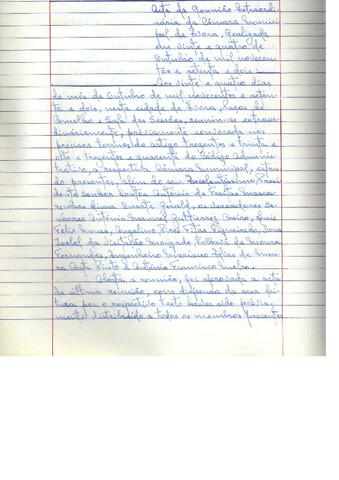 Acta da Reunião Extraordi-
nária da Câmara Munici-
pal de Évora, Realizada
em vinte e quatro de
Outubro de mil novecen-
tos e setenta e dois:
Aos vinte e quatro dias
do mês de Outubro de mil novecentos e seten-
ta e dois, nesta cidade de Évora, Paços do
Concelho e Sala das Sessões, reuniu-se extraor-
dinàriamente, prèviamente convocada nos
precisos termos do artigo trezentos e trinta e
oito e trezentos e quarenta do Código Adminis-
trativo, a respectiva Câmara Municipal, estan-
do presentes, além do seu Excelentíssimo Presi-
dente Senhor Doutor António de Freitas Masca-
renhas Duarte Geraldo, os Vereadores Se-
nhores António Manuel Guttierrez Queiro, Luís
Felix Nunes, Angelino Pires Fitas Figueiredo, Dona
Isabel da Visitação
Fernandes, Engenheiro Mariano
Costa Pinto e António Francisco
Aberta a reunião, foi aprovada a acta
da última reunião, com dispensa da sua lei-
tura por o respectivo texto haver sido prèvia-
mente distribuido a todos os membros presentes